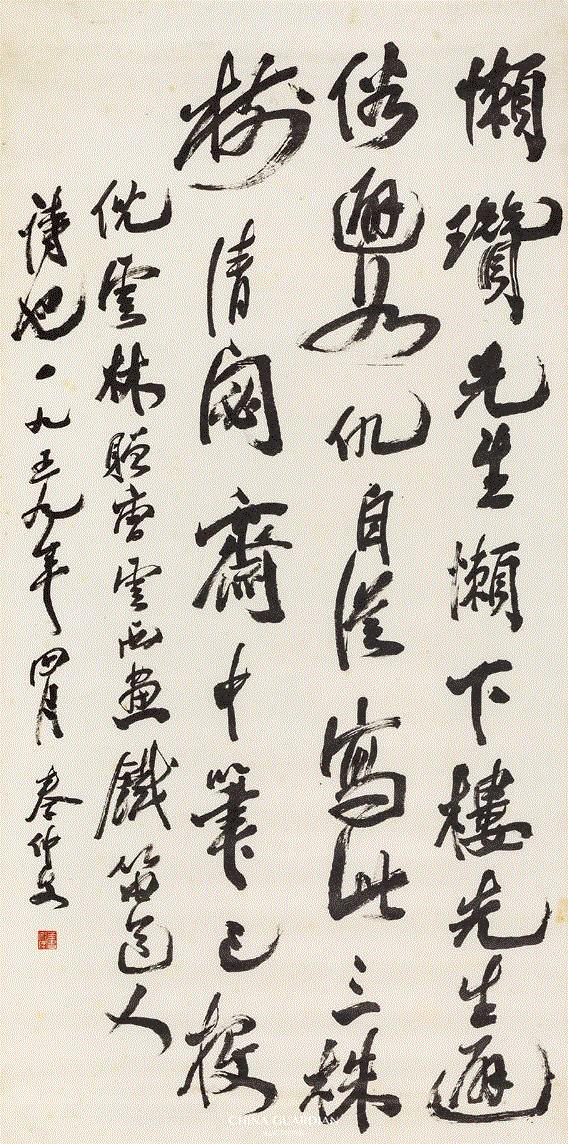 懶瓚先生懶下樓先生避
俗避如仇自從寫此三株
樹清閟齋中筆已投
倪雲林贈曹雲西畫鐵笛道人
詩也一九五九年四月秦仲文
CHINA GUARDIAN